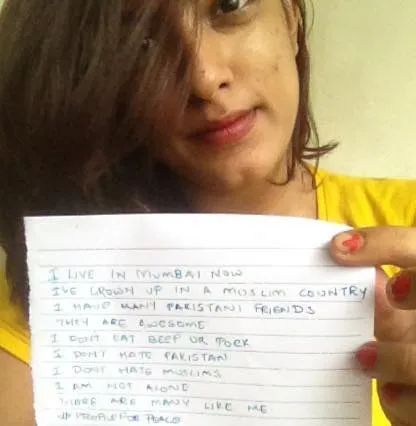 I LIVE IN MUMBAI NOW
I'VE GROWN UP IN A MUSLIM COUNTRY
I HAVE MANY PAKISTANI FRIENDS
THEY ARE AWESOME
I DONT EAT BEEF OR PORK
I DONT HATE PAKISTAN
I DONT HATE MUSLIMS
I AM NOT ALONE
THERE ARE MANY LIKE ME
# PEOPLE FOR PEACE